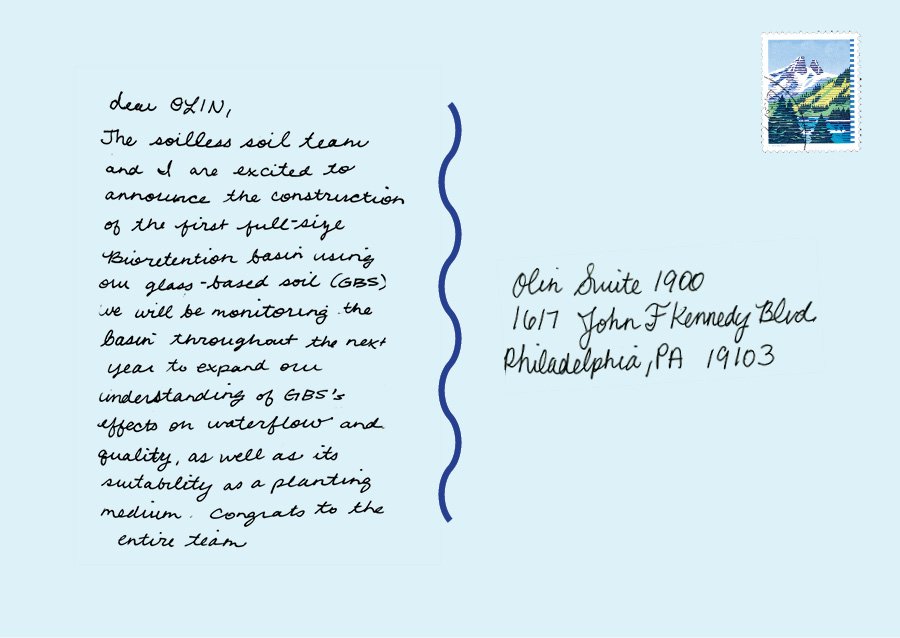 dear OLIN,
The soilless soil team
and I are excited to
announce the construction
of the first full-size
Bioretention basin using
our glass-based soil (GBS)
we will be monitoring the
basin throughout the next
year to expand our
understanding of GBS's
effects on waterflow and
quality, as well as its
suitability as a planting
medium. Congrats to the
entire team
Olin Suite 1900
1617 John F Kennedy Blvd.
Philadelphia, PA 19103